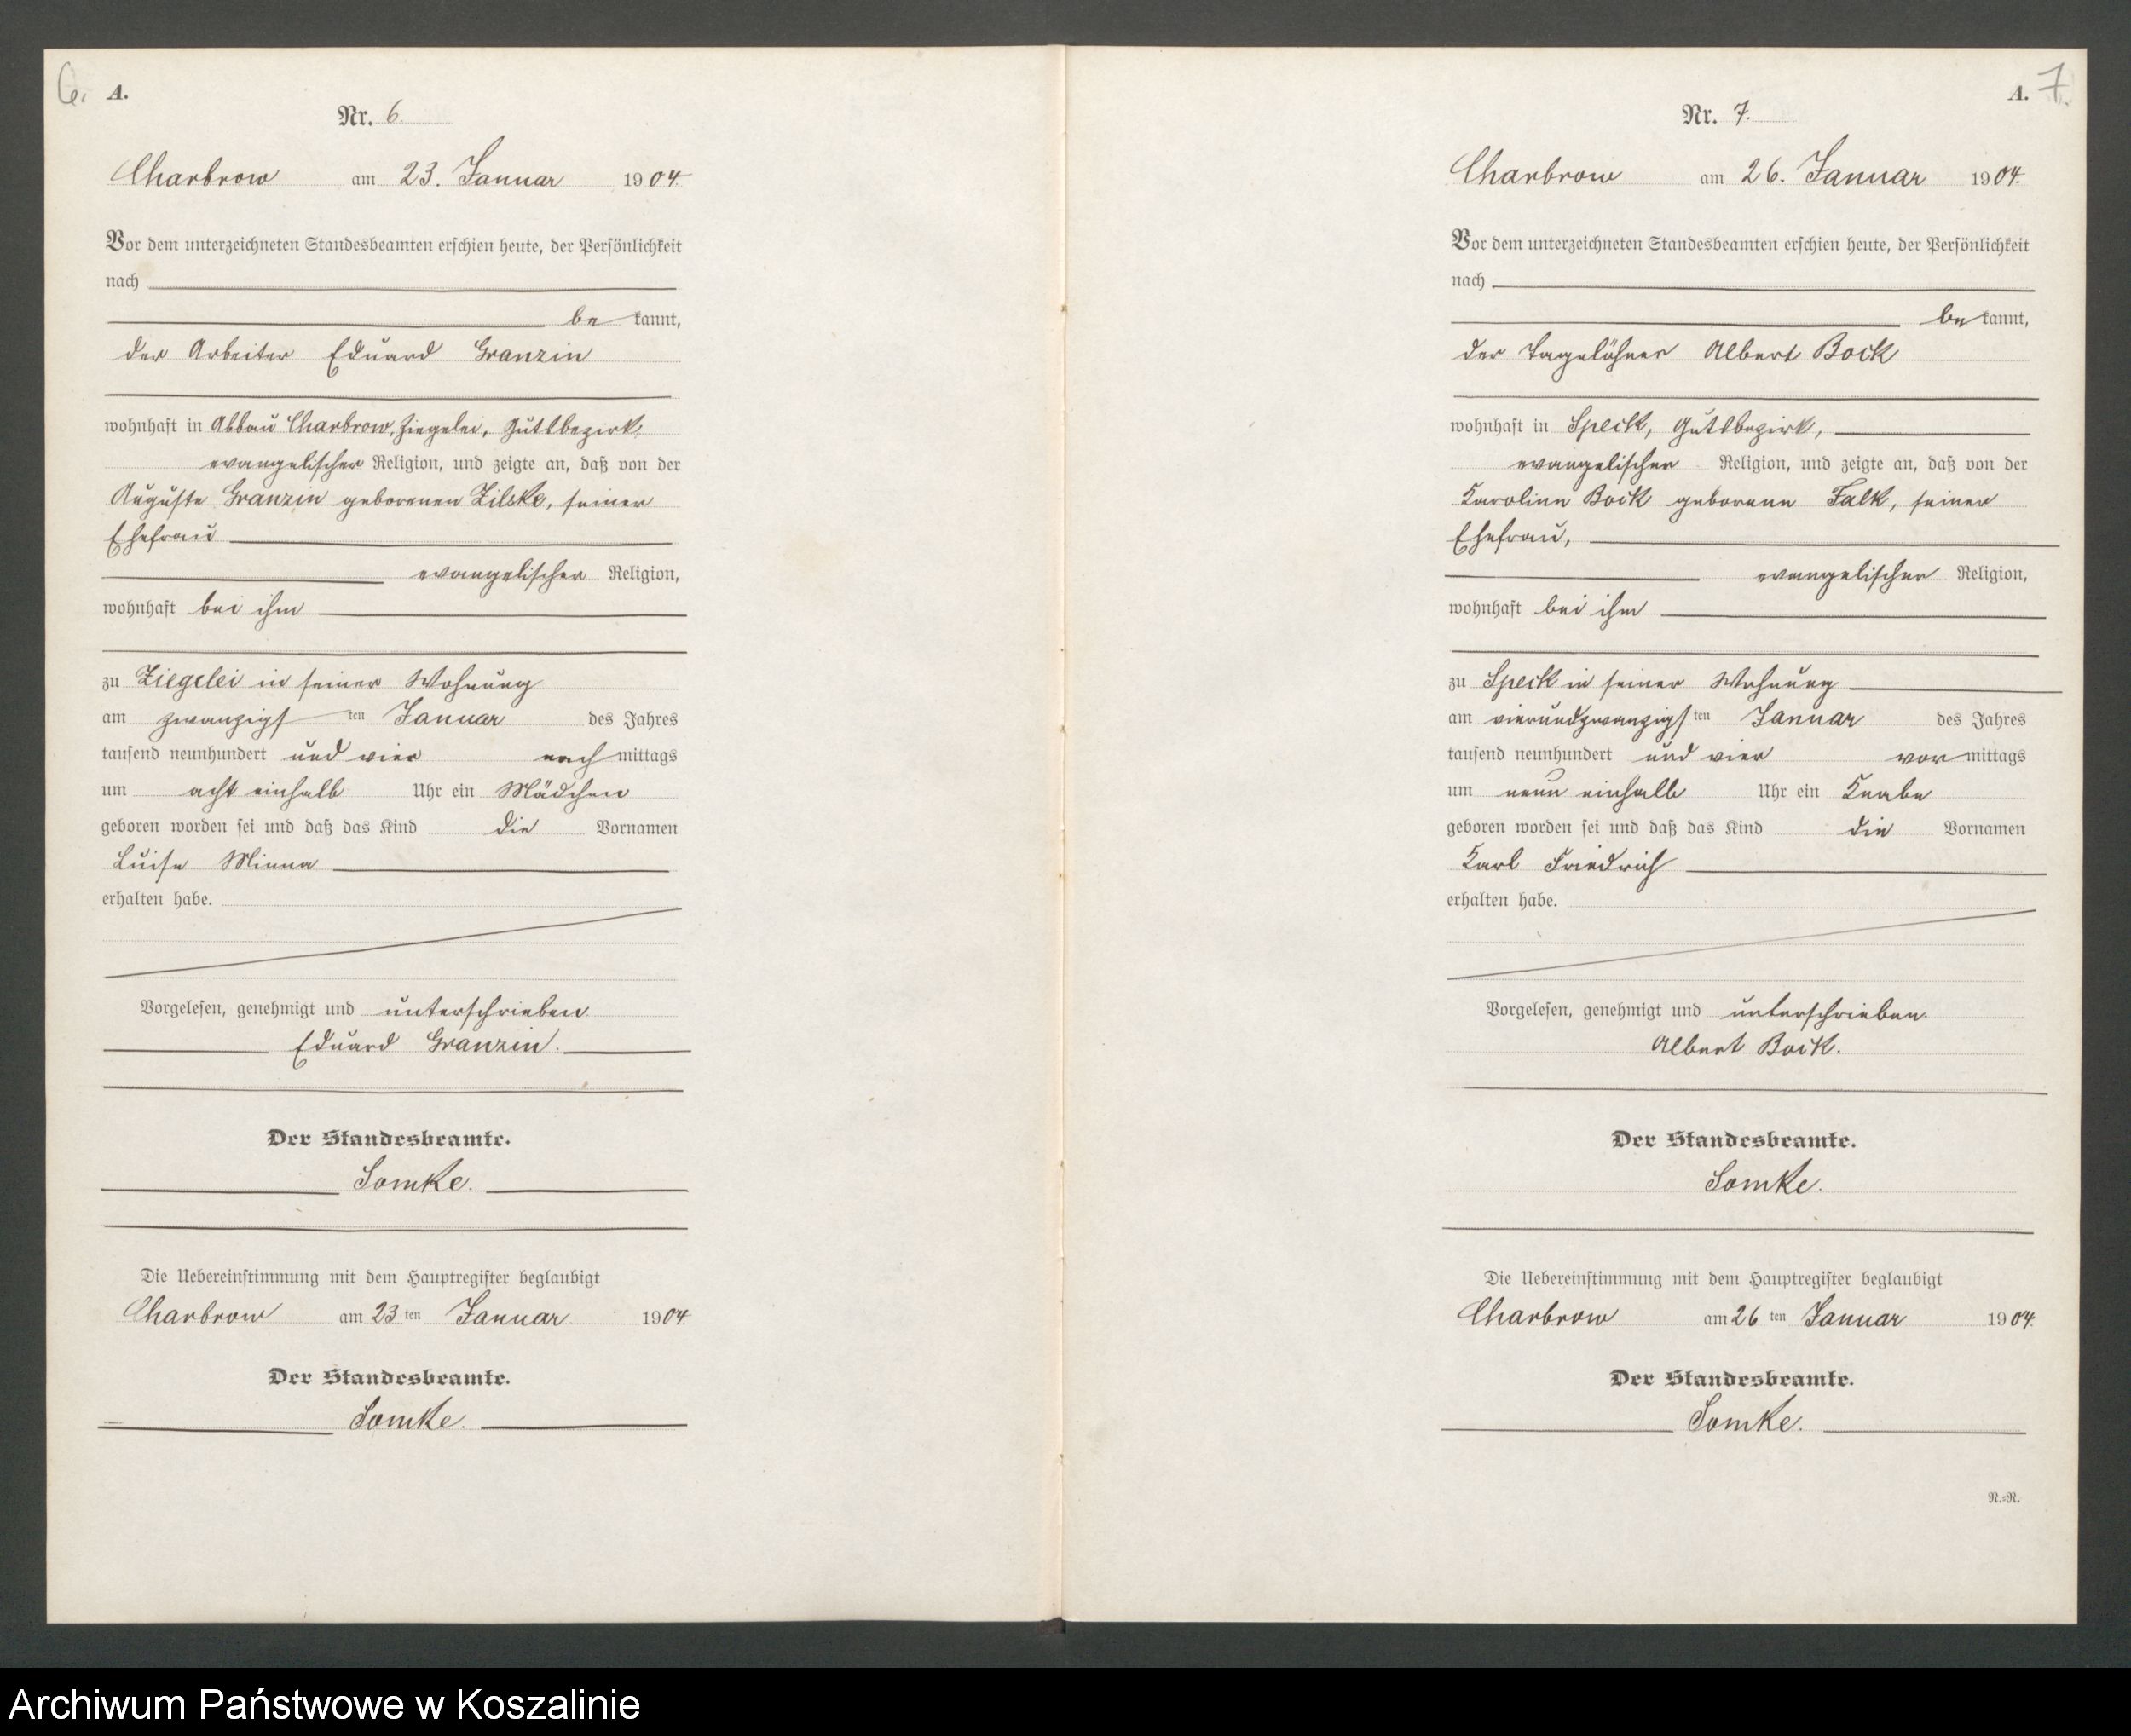 6.
A.
Nr. 6.
Charbrow am 23. Januar 1904.
Vor dem unterzeichneten Standesbeamten erschien heute, der Persönlichkeit
nach
be kannt,
der Arbeiter Eduard Granzin
wohnhaft in Abbau Charbrow, Ziegelei, Gutsbezirk,
evangelischer Religion, und zeigte an, daß von der
Auguste Granzin geborenen Zilske, seiner
Ehefrau
evangelischer Religion,
wohnhaft bei ihm
zu Ziegelei in seiner Wohnung
am zwanzigsten Januar des Jahres
tausend neunhundert und vier nachmittags
um acht einhalb Uhr ein Mädchen
geboren worden sei und daß das Kind die Vornamen
Luise Minna
erhalten habe.
Vorgelesen, genehmigt und unterschrieben
Eduard Granzin.
Der Standesbeamte.
Somke.
Die Uebereinstimmung mit dem Hauptregister beglaubigt
Charbrow am 23ten Januar 1904.
Der Standesbeamte.
Somke.
A.
7.
Nr. 7.
Charbrow am 26. Januar 1904.
Vor dem unterzeichneten Standesbeamten erschien heute, der Persönlichkeit
nach
be kannt,
der Tagelöhner Albert Bock
wohnhaft in Speck, Gutsbezirk,
evangelischer Religion, und zeigte an, daß von der
Karoline Bock geborene Falk, seiner
Ehefrau,
evangelischer Religion,
wohnhaft bei ihm
zu Speck in seiner Wohnung
am vierundzwanzigsten Januar des Jahres
tausend neunhundert und vier vormittags
um neun einhalb Uhr ein Knabe
geboren worden sei und daß das Kind die Vornamen
Karl Friedrich
erhalten habe.
Vorgelesen, genehmigt und unterschrieben.
Albert Bock.
Der Standesbeamte.
Somke.
Die Uebereinstimmung mit dem Hauptregister beglaubigt
Charbrow am 26ten Januar 1904.
Der Standesbeamte.
Somke.
R.=R.
Archiwum Państwowe w Koszalinie